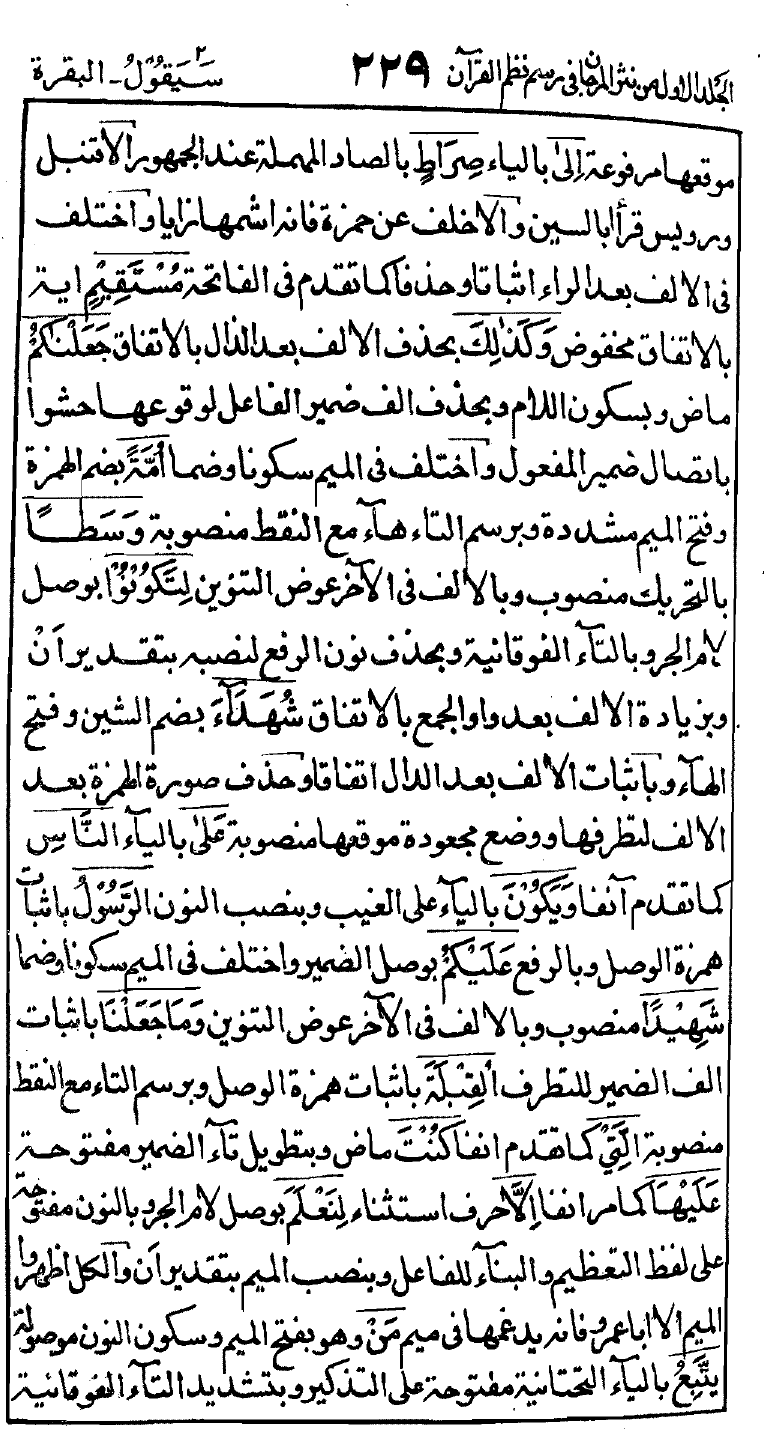 الجلد الاول من نثر المرجان في رسم نظم القرآن ٢٢٩ سَيَقُوْلُ ٢ - البقرة
موقعها مرفوعة إِلىٰ بالياء صِرَاطٍ بالصاد المهملة عند الجمهور الا قنبل
ورويس قرأ ابالسين والا خلف عن حمزة فانه اشمها زايا واختلف
فى الالف بعد الراء اثباتا وحذفا كما تقدم فى الفاتحة مُسْتَقِيْمٍ اية
بالاتفاق مخفوض وَكَذٰلِكَ بحذف الالف بعد الذال بالاتفاق جَعَلْنٰكُمْ
ماض وبسكون اللام وبحذف الف ضمير الفاعل لوقوعها حشوا
باتصال ضمير المفعول واختلف فى الميم سكونا وضما أُمَّةً بضم الهمزة
وفتح الميم مشددة وبرسم التاء هآء مع النقط منصوبة وَسَطًا
بالتحريك منصوب وبالالف فى الآخر عوض التنوين لِتَكُوْنُوْا بوصل
لام الجر وبالتآء الفوقانية وبحذف نون الرفع لنصبه بتقدير أَنْ
وبزيادة الالف بعد واو الجمع بالاتفاق شُهَدَآءَ بضم الشين وفتح
الهآء وباثبات الألف بعد الدال اتفاقا وحذف صورة الهمزة بعد
الالف لتطرفها ووضع مجعودة موقعها منصوبة عَلىٰ بالياء النَّاسِ
كما تقدم آنفا وَيَكُوْنَ بالياء على الغيب وبنصب النون الرَّسُوْلُ باثبات
همزة الوصل وبالرفع عَلَيْكُمْ بوصل الضمير واختلف فى الميم سكونا وضما
شَهِيْدًا منصوب وبالالف فى الآخر عوض التنوين وَمَا جَعَلْنَا باثبات
الف الضمير للتطرف الْقِبْلَةَ باثبات همزة الوصل وبرسم التاء مع النقط
منصوبة الَّتِيْ كما تقدم انفا كُنْتَ ماض وبتطويل تآء الضمير مفتوحة
عَلَيْهَآ كما مر انفا إِلَّا حرف استثناء لِنَعْلَمَ بوصل لام الجر وبالنون مفتوحة
على لفظ التعظيم والبنآء للفاعل وبنصب الميم بتقدير ان والكل اظهروا
الميم الا ابا عمرو فانه يدغمها فى ميم مَنْ وهو بفتح الميم وسكون النون موصولة
يَتَّبِعُ باليآء التحتانية مفتوحة على التذكير وبتشديد التآء الفوقانية